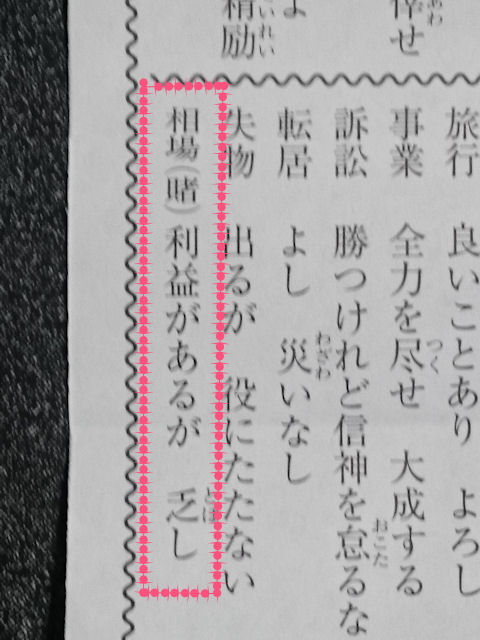 幸せ
精励
旅行 良いことあり よろし
事業 全力を尽せ 大成する
訴訟 勝つけれど信神を怠るな
転居 よし 災いなし
失物 出るが 役にたたない
相場(賭) 利益があるが 乏し